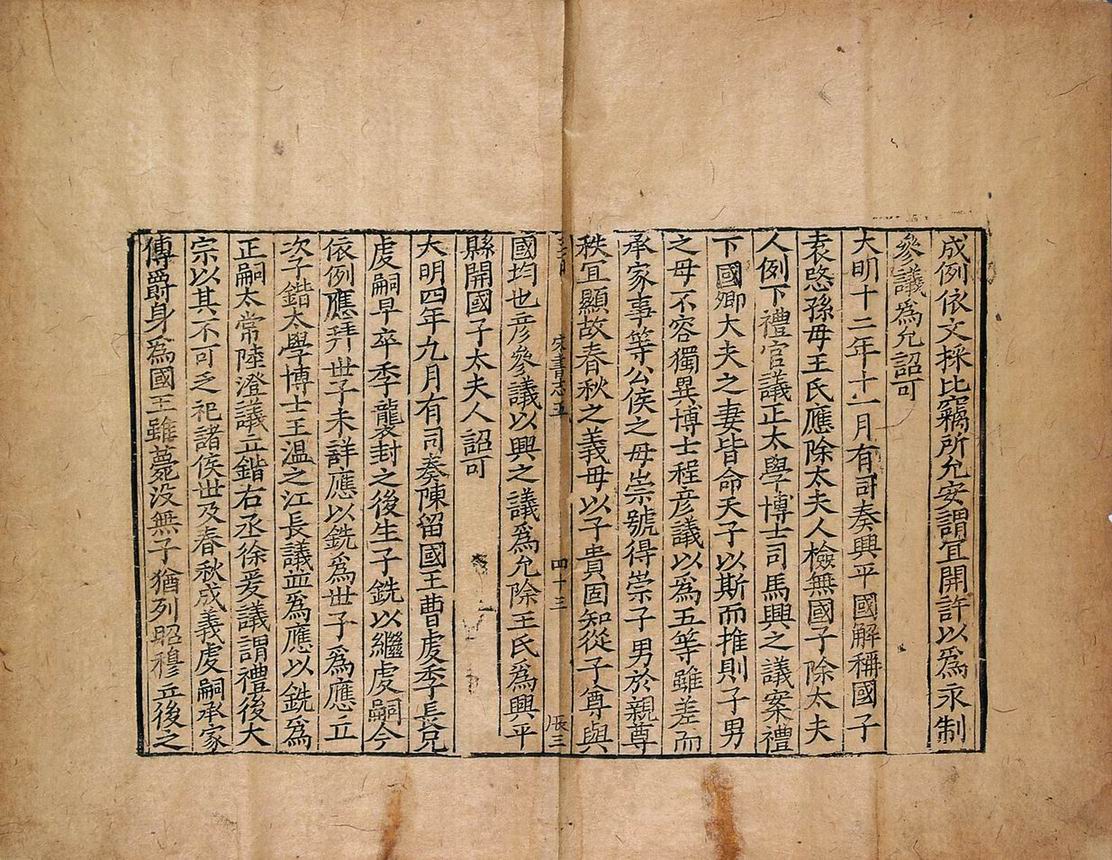 成例依文採比竊所允安謂宜開許以爲永制
參議爲允詔可
大明十二年十一月有司奏興平國解稱國子
袁愍孫母王氏應除太夫人檢無國子除太夫
人例下禮官議正太學博士司馬興之議案禮
下國卿大夫之妻皆命天子以斯而推則子男
之母不容獨異博士程彦議以爲五等雖差而
承家事等公侯之母崇號得崇子男於親尊
秩宜顯故春秋之義母以子貴固知從子尊與
宋書志五
四十三
國均也彦參議以興之議爲允除王氏爲興平
縣開國子太夫人詔可
大明四年九月有司奏陳留國王曹虔季長兄
虔嗣早卒季襲封之後生子銑以繼虔嗣今
依例應拜世子未詳應以銑爲世子爲應立
次子鍇太學博士王温之江長議並爲應以銑爲
正嗣太常陸澄議立鍇右丞徐爰議謂禮後大
宗以其不可乏祀諸侯世及春秋成義虔嗣承家
傳爵身爲國王雖薨没無子猶列昭穆立後之